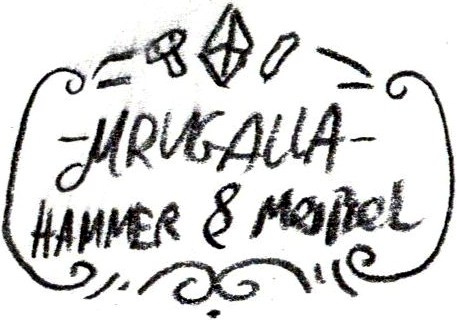 -MRUGALLA-
HAMMER & Meißel